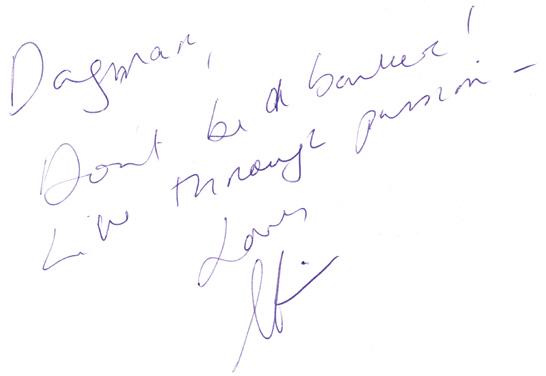 Dagmar,
Don't be a banker!
Live through passion –
Love,